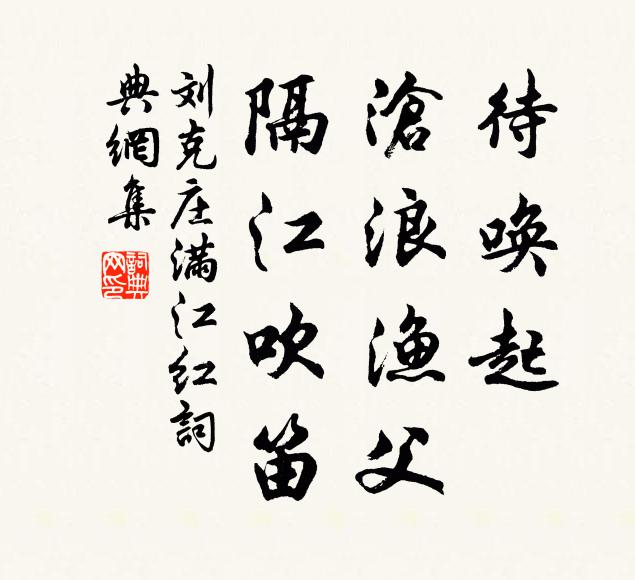 待唤起
滄浪漁父
隔江吹笛
刘克庄满江红詞
典網集
詞典網印